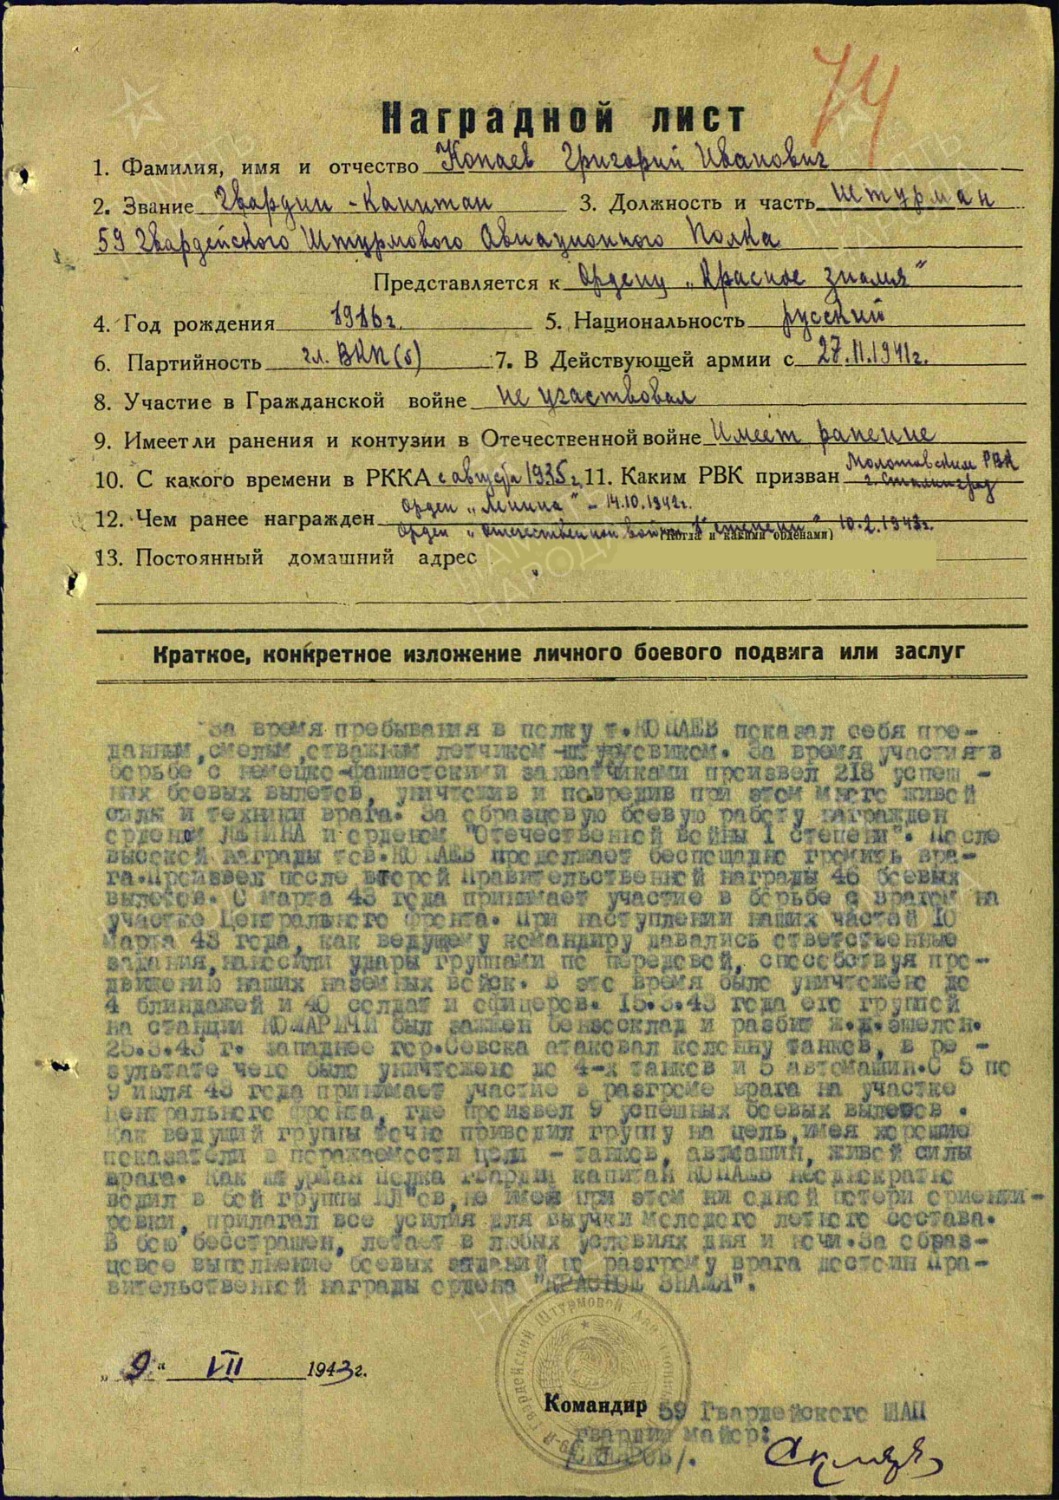 74
Наградной лист
1. Фамилия, имя и отчество Копаев Григорий Иванович
2. Звание Гвардии - Капитан 3. Должность и часть Штурман
59 Гвардейского Штурмового Авиационного Полка
Представляется к Ордену „Красное знамя"
4. Год рождения 1916 г. 5. Национальность русский
6. Партийность чл. ВКП(б) 7. В Действующей армии с 27.11.1941г.
8. Участие в Гражданской войне не участвовал
9. Имеет ли ранения и контузии в Отечественной войне Имеет ранение
10. С какого времени в РККА с августа 1935 г. 11. Каким РВК призван Молотовским РВК
г. Сталинград
12. Чем ранее награжден Орден „Ленина" - 14.10.1942г.
Орден „Отечественной войны 1 степени" 10.2.1943г.
(когда и какими орденами)
13. Постоянный домашний адрес
Краткое, конкретное изложение личного боевого подвига или заслуг
За время пребывания в полку т.КОПАЕВ показал себя пре-
данным, смелым, отважным летчиком-штурмовиком. За время участия в
борьбе с немецко-фашистскими захватчиками произвел 218 успеш -
ных боевых вылетов, уничтожив и повредив при этом много живой
силы и техники врага. За образцовую боевую работу награжден
орденом ЛЕНИНА и орденом "Отечественной войны 1 степени". После
высокой награды тов.КОПАЕВ продолжает беспощадно громить вра-
га.Произвел после второй Правительственной награды 46 боевых
вылетов. С марта 43 года принимает участие в борьбе с врагом на
участке Центрального фронта. При наступлении наших частей 10
марта 43 года, как ведущему командиру давались ответственные
задания, наносили удары группами по передовой, способствуя про-
движению наших наземных войск. В это время было уничтожено до
4 блиндажей и 40 солдат и офицеров. 15.3.43 года его группой
на станции КОМАРИЧИ был зажжен бензосклад и разбит ж.д.эшелон.
25.3.43 г. западнее гор.Севска атаковал колонну танков, в ре -
зультате чего было уничтожено до 4-х танков и 5 автомашин.С 5 по
9 июля 43 года принимает участие в разгроме врага на участке
Центрального фронта, где произвел 9 успешных боевых вылетов .
Как ведущий группы точно приводил группу на цель, имея хорошие
показатели в поражаемости цели - танков, автомашин, живой силы
врага. Как штурман полка гвардии капитан КОПАЕВ неоднократно
водил в бой группы ИЛ"ов, не имея при этом ни одной потери ориенти-
ровки, прилагал все усилия для выучки молодого летного состава.
В бою бесстрашен, летает в любых условиях дня и ночи.За образ-
цовое выполнение боевых заданий по разгрому врага достоин Пра-
вительственной награды ордена "КРАСНОЕ ЗНАМЯ".
„ 9 " VII 1943 г.
Командир 59 Гвардейского ШАП
гвардии майор:
/СКЛЯРОВ/.